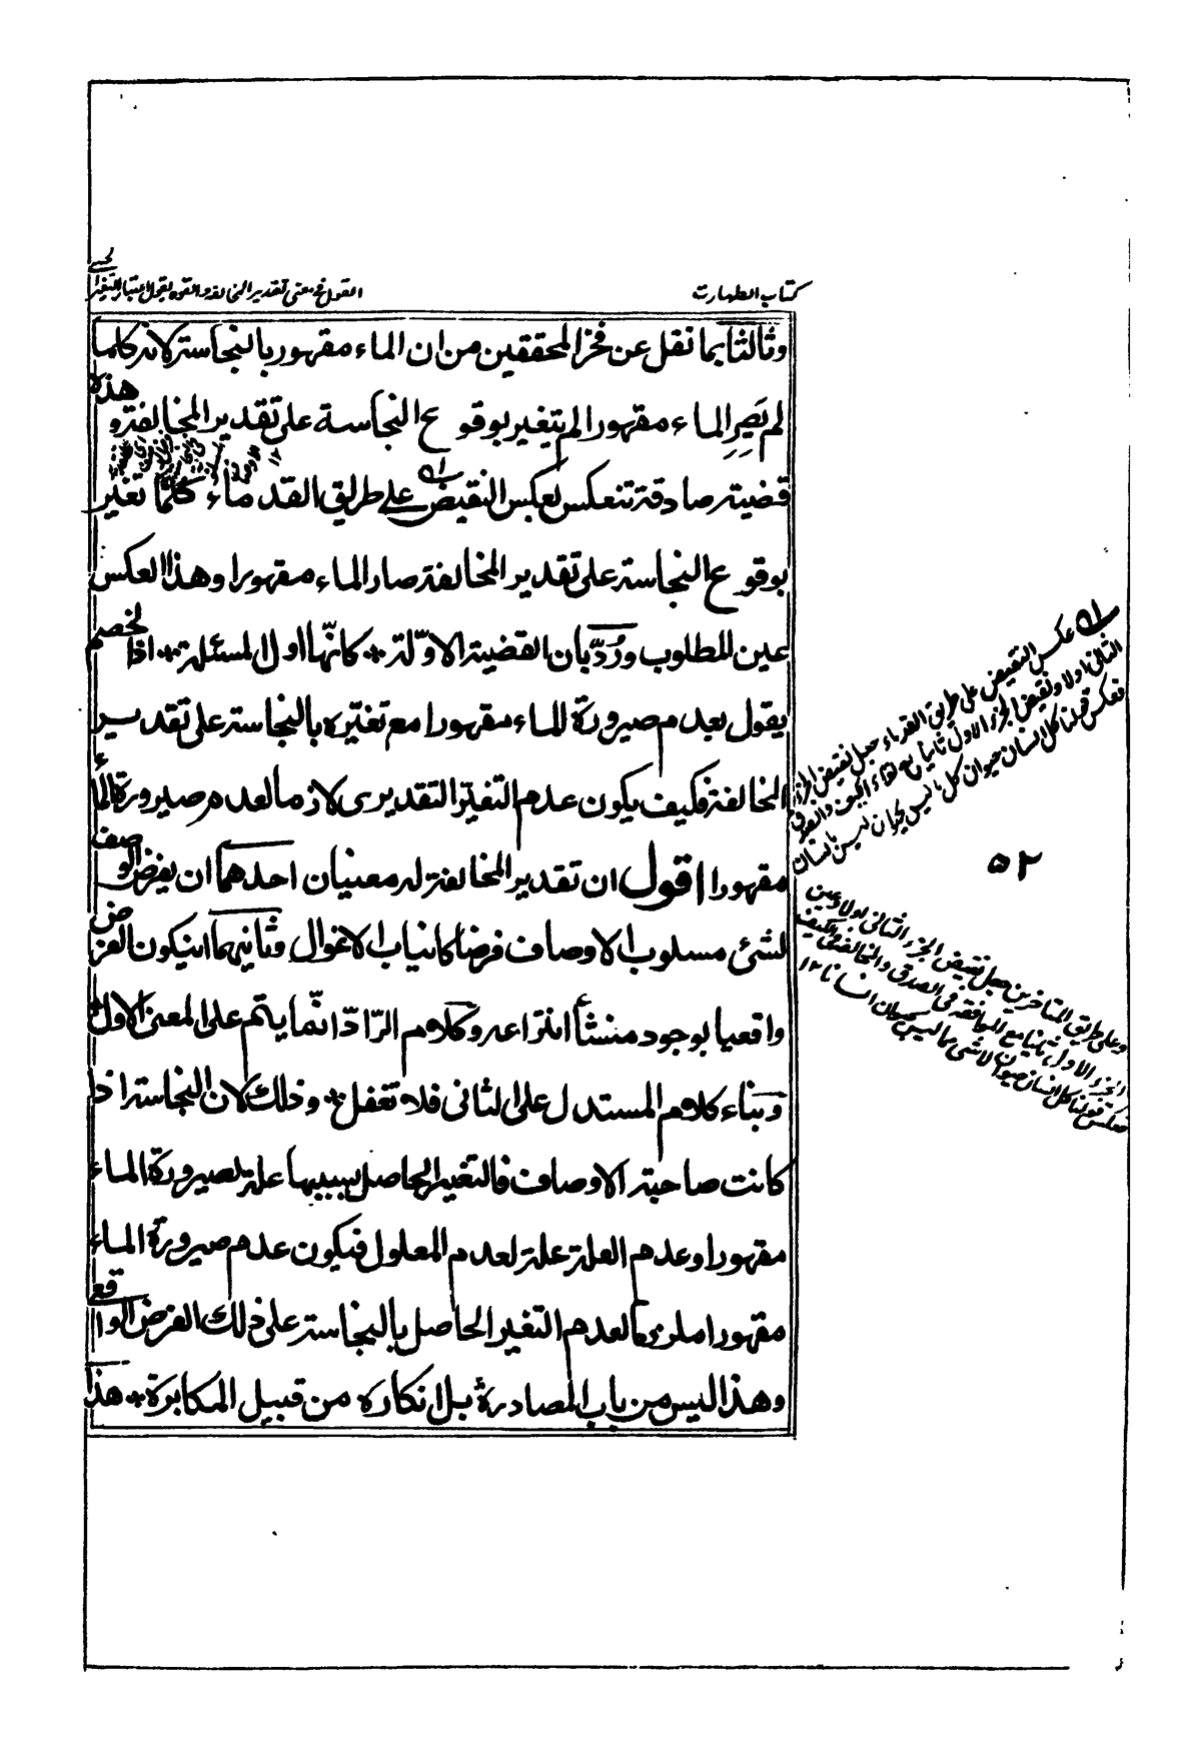 كتاب الطهارت
القول فى معنى تقدير المخالفة والقوة بقول اعتبار التغير
لحسى
وثالثا بما نقل عن فخر المحققين من ان الماء مقهور بالنجاسة لانه كلما
لم يَصِرِ الماء مقهورا لم يتغير بوقوع النجاسة على تقدير المخالفة وهذه
قضية صادقة تنعكس بعكس النقيض على طريق القدماء كلّما تغير
بوقوع النجاسة على تقدير المخالفة صار الماء مقهورا وهذا العكس
عين للمطلوب ورُدّ بان القضية الاوّلة كانّها اول المسئلة اذا لخصم
يقول بعدم صيرورة الماء مقهورا مع تغيّره بالنجاسة على تقدير
المخالفة فكيف يكون عدم التغيّر التقديرى لازما لعدم صيرورة الماء
مقهورا اقول ان تقدير المخالفة له معنيان احدهما ان يفرض الوصف
لشئ مسلوب الاوصاف فرضا كانياب الاغوال وثانيهما ان يكون الفرض
واقعيا بوجود منشأ انتزاعه وكلام الرّادّ انّما يتم على المعنى الاول
وبناء كلام المستدل على الثانى فلا تغفل وذلك لان النجاسة اذا
كانت صاحبة الاوصاف فالتغير الحاصل بسببها علة لصيرورة الماء
مقهورا وعدم العلة علة لعدم المعلول فيكون عدم صيرورة الماء
مقهورا ملزوما لعدم التغير الحاصل بالنجاسة على ذلك الفرض الواقعى
وهذا ليس من باب المصادرة بل انكاره من قبيل المكابرة هذا
عكس النقيض على طريق القدماء جعل نقيض الجزء
الثانى اولا ونقيض الجزء الاول ثانيا مع بقاء الكيف والصدق
فعكس قولنا كل انسان حيوان كل ما ليس بحيوان ليس بانسان
٥٢
وعلى طريق المتاخرين جعل نقيض الجزء الثانى اولا وعين
الجزء الاول ثانيا مع الموافقة فى الصدق والمخالفة فى الكيف
فعكس قولنا كل انسان حيوان لا شئ مما ليس بحيوان انسانا ١٢